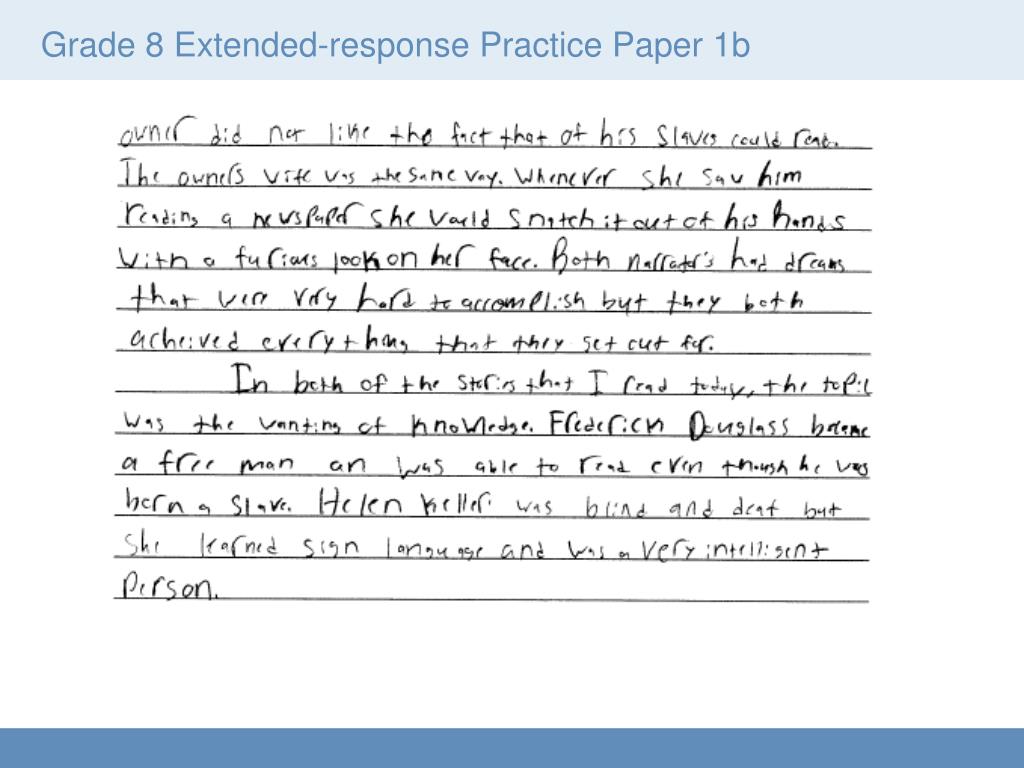 Grade 8 Extended-response Practice Paper 1b
owner did not like the fact that of his slaves could read.
The owners wife was the same way. Whenever she saw him
reading a newspaper she would snatch it out of his hands
with a furious look on her face. Both narrator's had dreams
that were very hard to accomplish but they both
acheived everything that they set out for.
In both of the stories that I read today, the topic
was the wanting of knowledge. Frederick Douglass became
a free man an was able to read even though he was
born a slave. Helen Keller was blind and deaf but
she learned sign language and was a very intelligent
person.